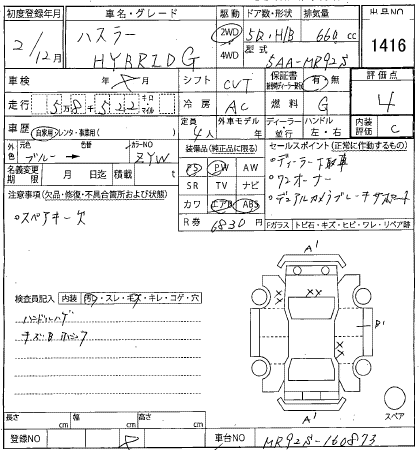 初度登録年月 車名・グレード 駆動 ドア数・形状 排気量 出品NO
2/12月 ハスラー HYBRID G 2WD 4WD 5D, H/B 660 cc 1416
型式 5AA-MR92S
車検 年 月 シフト CVT 保証書 有・無 評価点
走行 5万8千522 キロ マイル 冷房 AC 燃料 G 4
車歴 自家用 レンタ・事業用 定員 4人 外車モデル 年 ディーラー 並行 ハンドル 左・右 内装評価 C
外色 元色 ブルー → 色替 カラーNO ZYW
装備品(純正品に限る) セールスポイント(正常に作動するもの)
PS PW AW ・ディーラー下取車
名義変更期限 月 日迄 積載 t SR TV ナビ ・ワンオーナー
注意事項(欠品・修復・不具合箇所および状態) カワ エアB ABS ・デュアルカメラブレーキサポート
・スペアキー欠 R券 6830円 Fガラス トビ石・キズ・ヒビ・ワレ・リペア跡
A'
検査員記入 内装 汚れ・スレ・キズ・キレ・コゲ・穴
ハンドルハゲ
B'
スペア
A'
長さ cm 幅 cm 高さ cm
登録NO 車台NO MR92S-160873